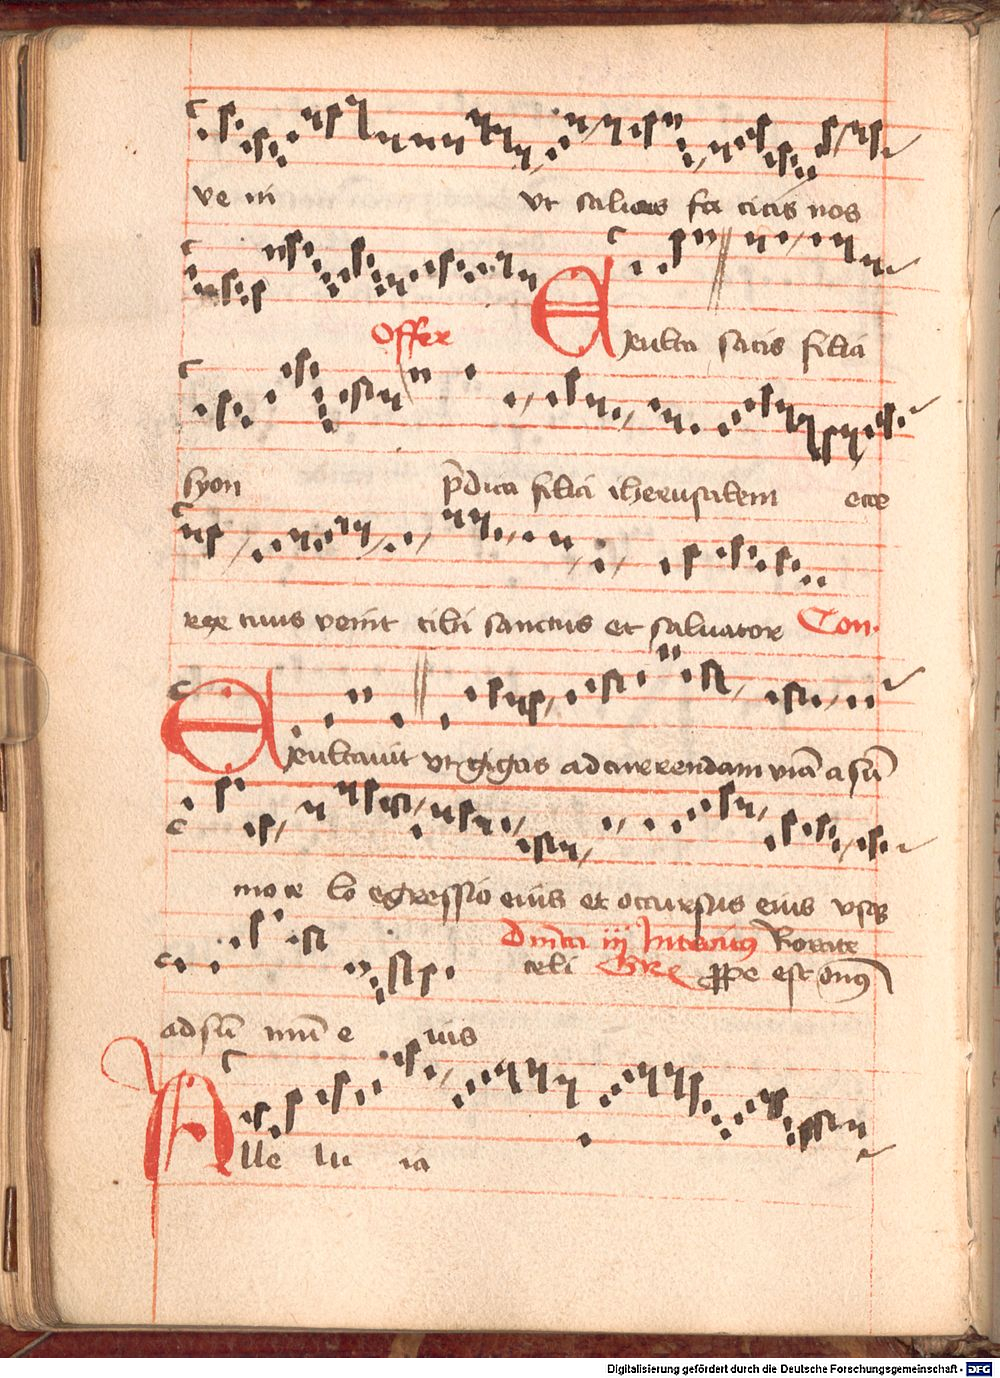 ve ni ut saluos fa ciais nos
Offer Exulta satis filia
syon p̄dica filia iherusalem ecce
rex tuus venit tibi sanctus et saluator Con.
Exultauit ut gigas ad currendam viā a sūi
mo ce lo egressio eius et occursus eius usqȝ
Dm̄ca iij Introitus Rorate
celi Gre ꝓpe est
ad sūi mū e ius
Alle lu ia
Digitalisierung gefördert durch die Deutsche Forschungsgemeinschaft - DFG